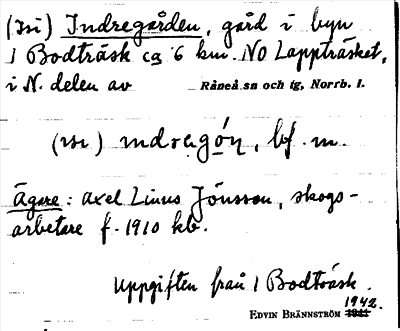 (Isi) Indregården, gård i byn
1 Bodträsk ca 6 km. NO Lappträsket,
i N. delen av Råneå sn och tg, Norrb. l.
Ägare: Axel Linus Jönsson, skogs-
arbetare f. 1910 kb.
Uppgiften från 1 Bodträsk.
EDVIN BRÄNNSTRÖM 1942.